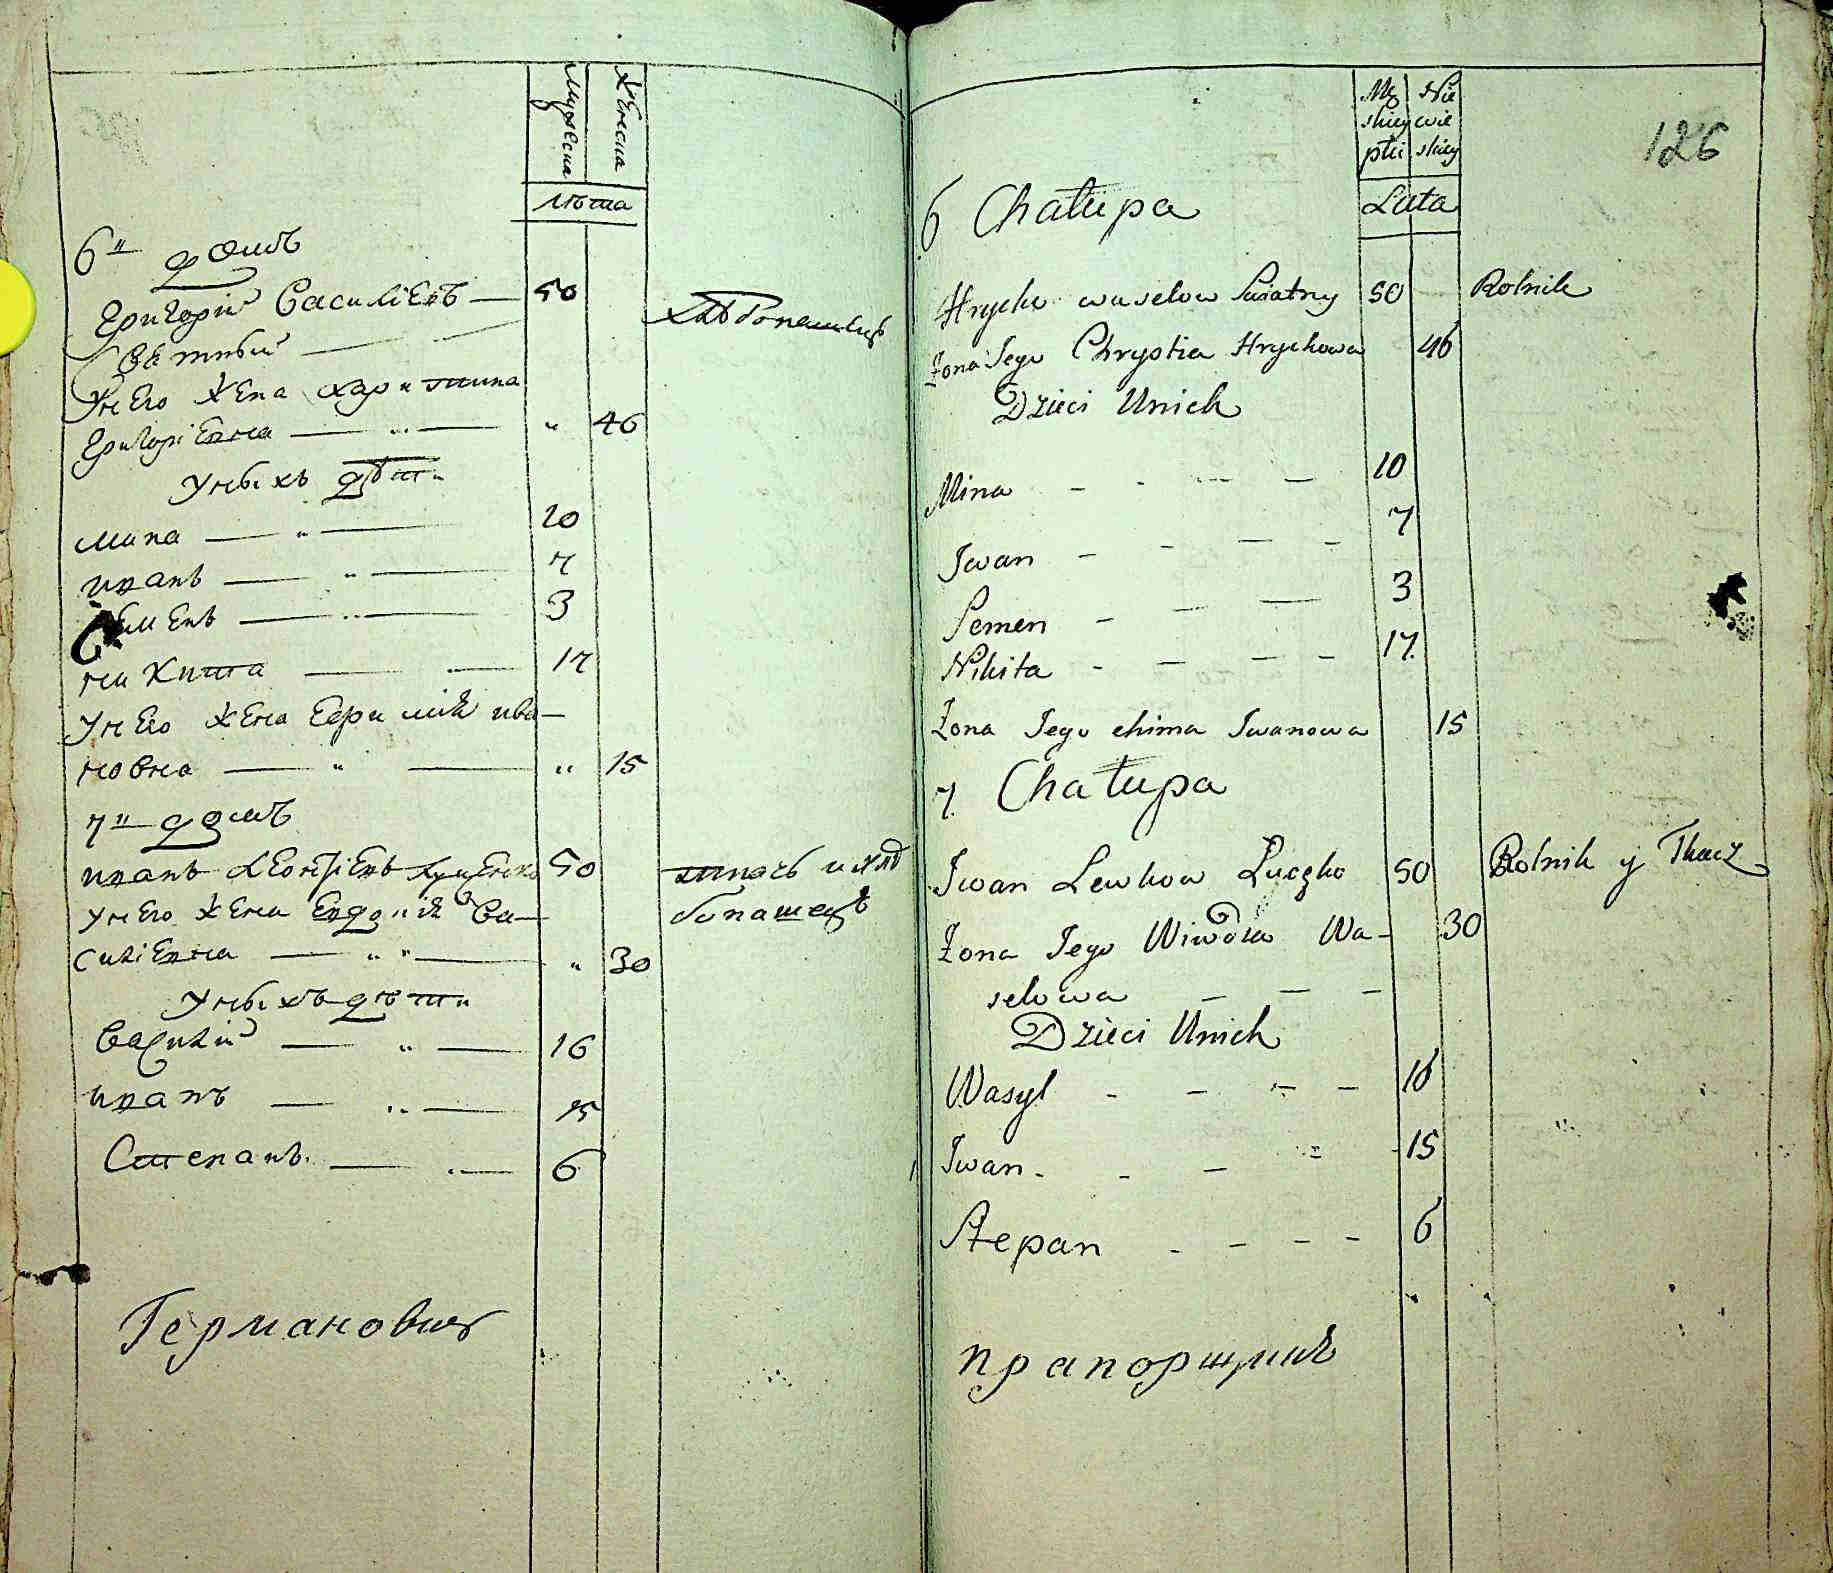 Мужеска
Женска
лѣта
6й домъ
Григорій Василіевъ — 50
Хлебопашецъ
Унего жена Христина
Григоріевна — „ — „ 46
Унихъ дѣти
Мина — „ — 10
Иванъ — „ — 7
Семенъ — „ — 3
Никита — „ — 17
Унего жена Ефимія Ива-
новна — „ — „ 15
7й домъ
Иванъ Леонтіевъ 50
ткачь и хлѣ
бопашецъ
Унего жена Евдокія Ва-
силіевна — „ — „ 30
Унихъ дѣти
Василій — „ — 16
Иванъ — „ — 15
Степанъ — „ — 6
Германовичъ
126
Mę
skiey
płci
Nie
wie
skiey
Lata
6 Chałupa
Hrycko waselow Swatny 50 Rolnik
Żona Jego Chrystia Hryckowa 46
Dzieci Unich
Mina - - - - 10
Iwan - - - - 7
Semen - - - 3
Nikita - - - - 17.
Żona Jego chima Iwanowa 15
7. Chałupa
Iwan Lewkow Łuczko 50 Rolnik y Tkacz
Żona Jego Wiwdia Wa- 30
selowa - - -
Dzieci Unich
Wasyl - - - - 16
Iwan - - - - 15
Stepan - - - - 6
прапорщикъ